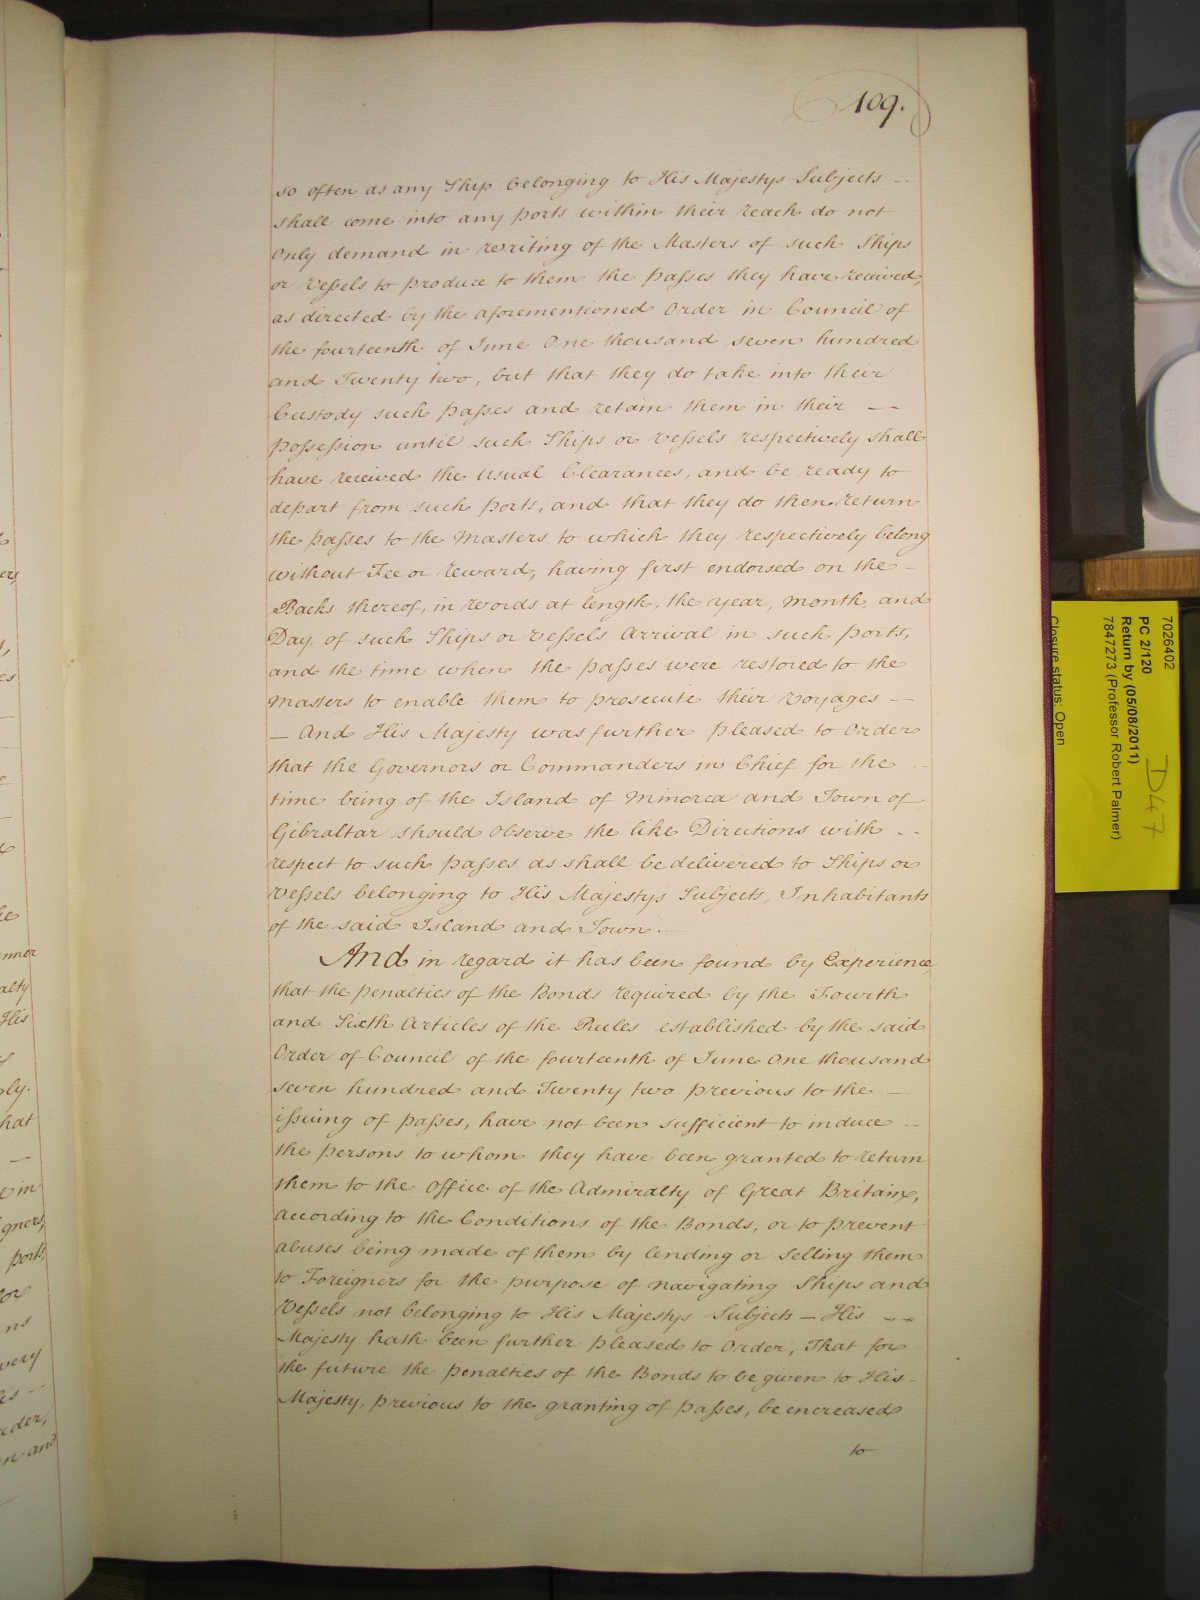 109.
so often as any Ship belonging to His Majestys Subjects --
shall come into any ports within their reach do not
Only demand in writing of the Masters of such Ships
or Vessels to produce to them the passes they have received,
as directed by the aforementioned Order in Council of
the fourteenth of June One thousand seven hundred
and Twenty two, but that they do take into their
Custody such passes and retain them in their —
possession until such Ships or Vessels respectively shall
have received the usual Clearances, and be ready to
depart from such ports, and that they do then return
the passes to the Masters to which they respectively belong
without Fee or reward, having first endorsed on the -
Backs thereof, in words at length, the year, month, and
Day, of such Ships or Vessels Arrival in such ports,
and the time when the passes were restored to the
Masters to enable them to prosecute their Voyages —
— And His Majesty was further pleased to order
that the Governors or Commanders in Chief for the --
time being of the Island of Minorca and Town of
Gibraltar should observe the like Directions with --
respect to such passes as shall be delivered to Ships or
Vessels belonging to His Majestys Subjects, Inhabitants
of the said Island and Town. —
And in regard it has been found by Experience,
that the penalties of the Bonds required by the Fourth
and Sixth Articles of the Rules established by the said
Order of Council of the fourteenth of June One thousand
seven hundred and Twenty two previous to the —
issuing of passes, have not been sufficient to induce --
the persons to whom they have been granted to return
them to the Office of the Admiralty of Great Britain,
according to the Conditions of the Bonds, or to prevent
abuses being made of them by lending or selling them
to Foreigners for the purpose of navigating Ships and
Vessels not belonging to His Majestys Subjects — His --
Majesty hath been further pleased to Order, That for
the future the penalties of the Bonds to be given to His -
Majesty, previous to the granting of passes, be encreased
to
7026402
PC 2/120
Return by (05/08/2011)
7847273 (Professor Robert Palmer)
Closure status: Open
D47